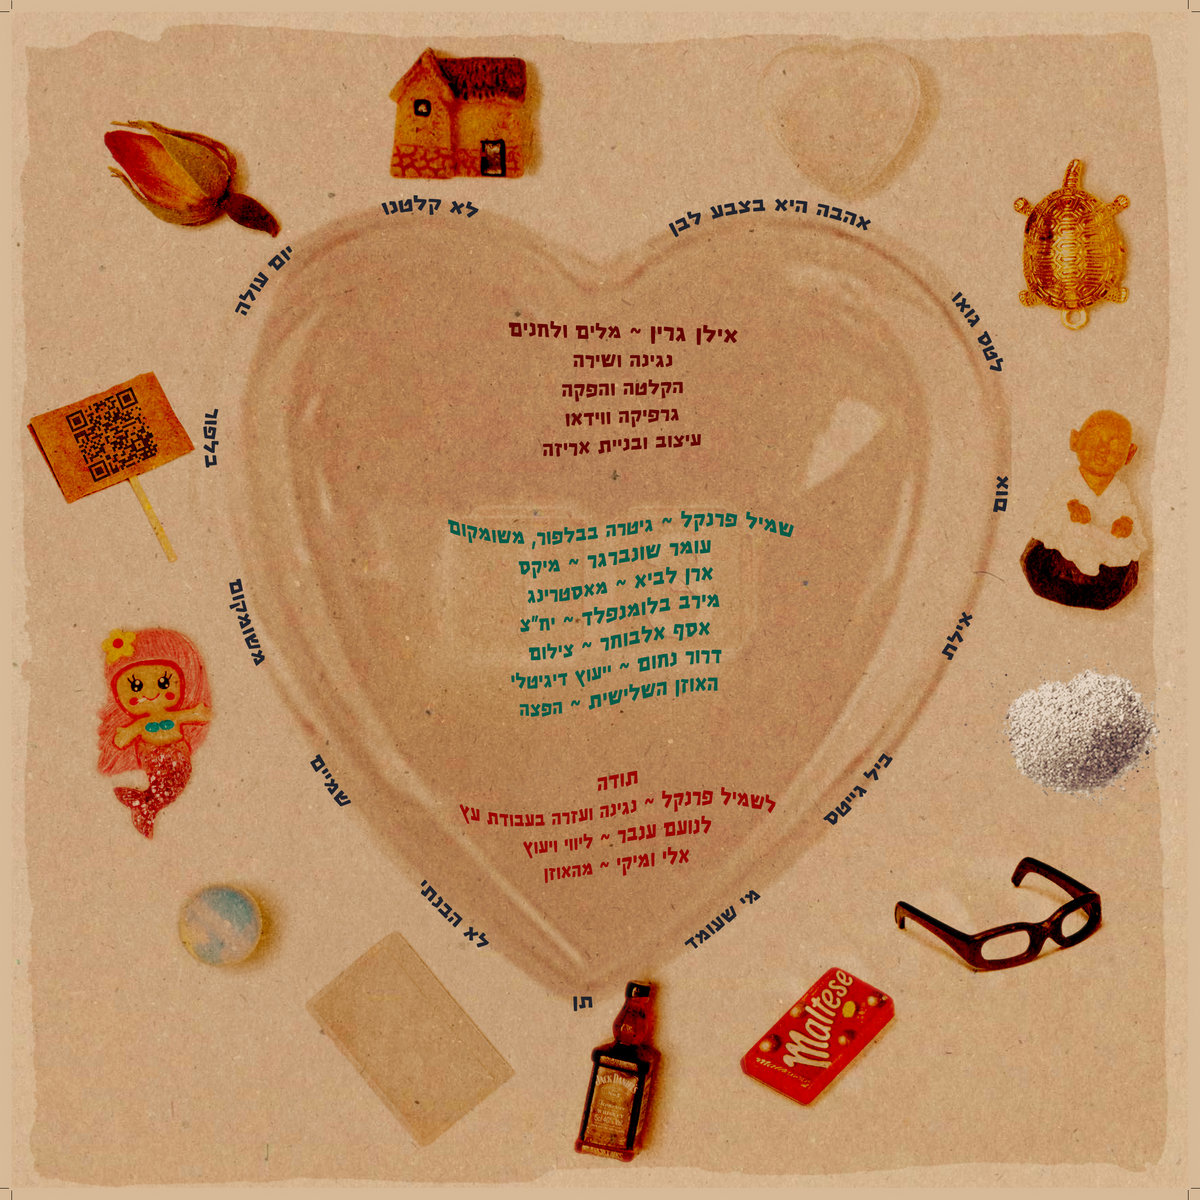 אהבה היא בצבע לבן
לטס גואו
אום
אילת
ביל גייטס
מי שעומד
תן
לא הבנתי
שמיים
משומקום
בלפור
יום עולה
לא קלטנו
אילן גרין ~ מלים ולחנים
נגינה ושירה
הקלטה והפקה
גרפיקה ווידאו
עיצוב ובניית אריזה
שמיל פרנקל ~ גיטרה בבלפור, משומקום
עומר שונברגר ~ מיקס
ארן לביא ~ מאסטרינג
מירב בלומנפלד ~ יח"צ
אסף אלבוחר ~ צילום
דרור נחום ~ ייעוץ דיגיטלי
האוזן השלישית ~ הפצה
תודה
לשמיל פרנקל ~ נגינה ועזרה בעבודת עץ
לנועם ענבר ~ ליווי ויעוץ
אלי ומיקי ~ מהאוזן
Maltese
JACK DANIEL'S